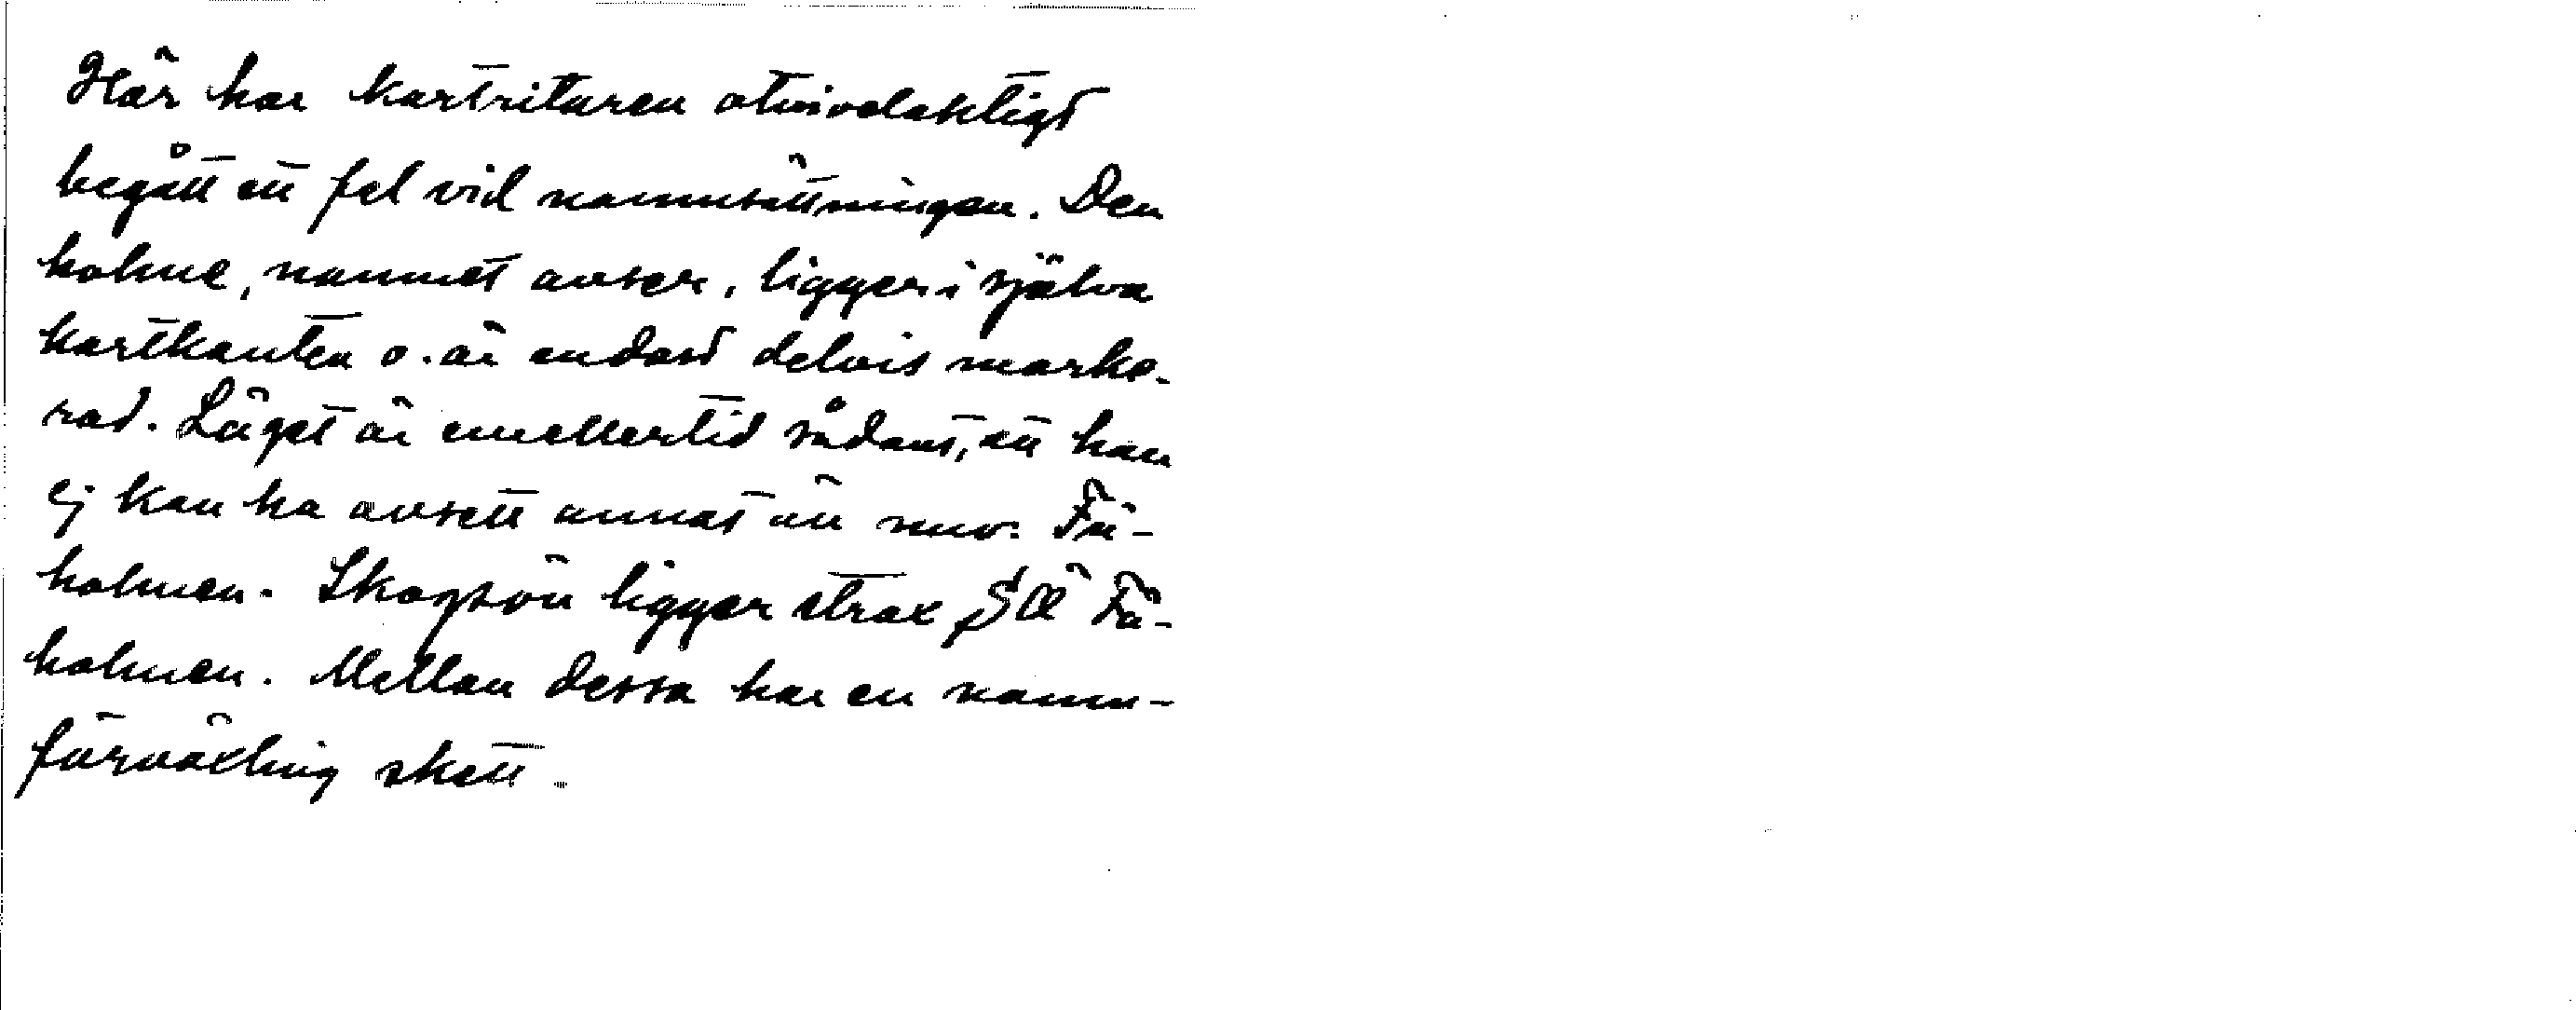 Här har kartritaren otvivelaktigt
begått ett fel vid namnsättningen. Den
holme, namnet avser, ligger i själva
kartkanten o. är endast delvis marke-
rad. Läget är emellertid sådant, att han
ej kan ha avsett annat än nuv. Få-
holmen. Skogsön ligger strax SÖ Få-
holmen. Mellan dessa har en namn-
förväxling skett.